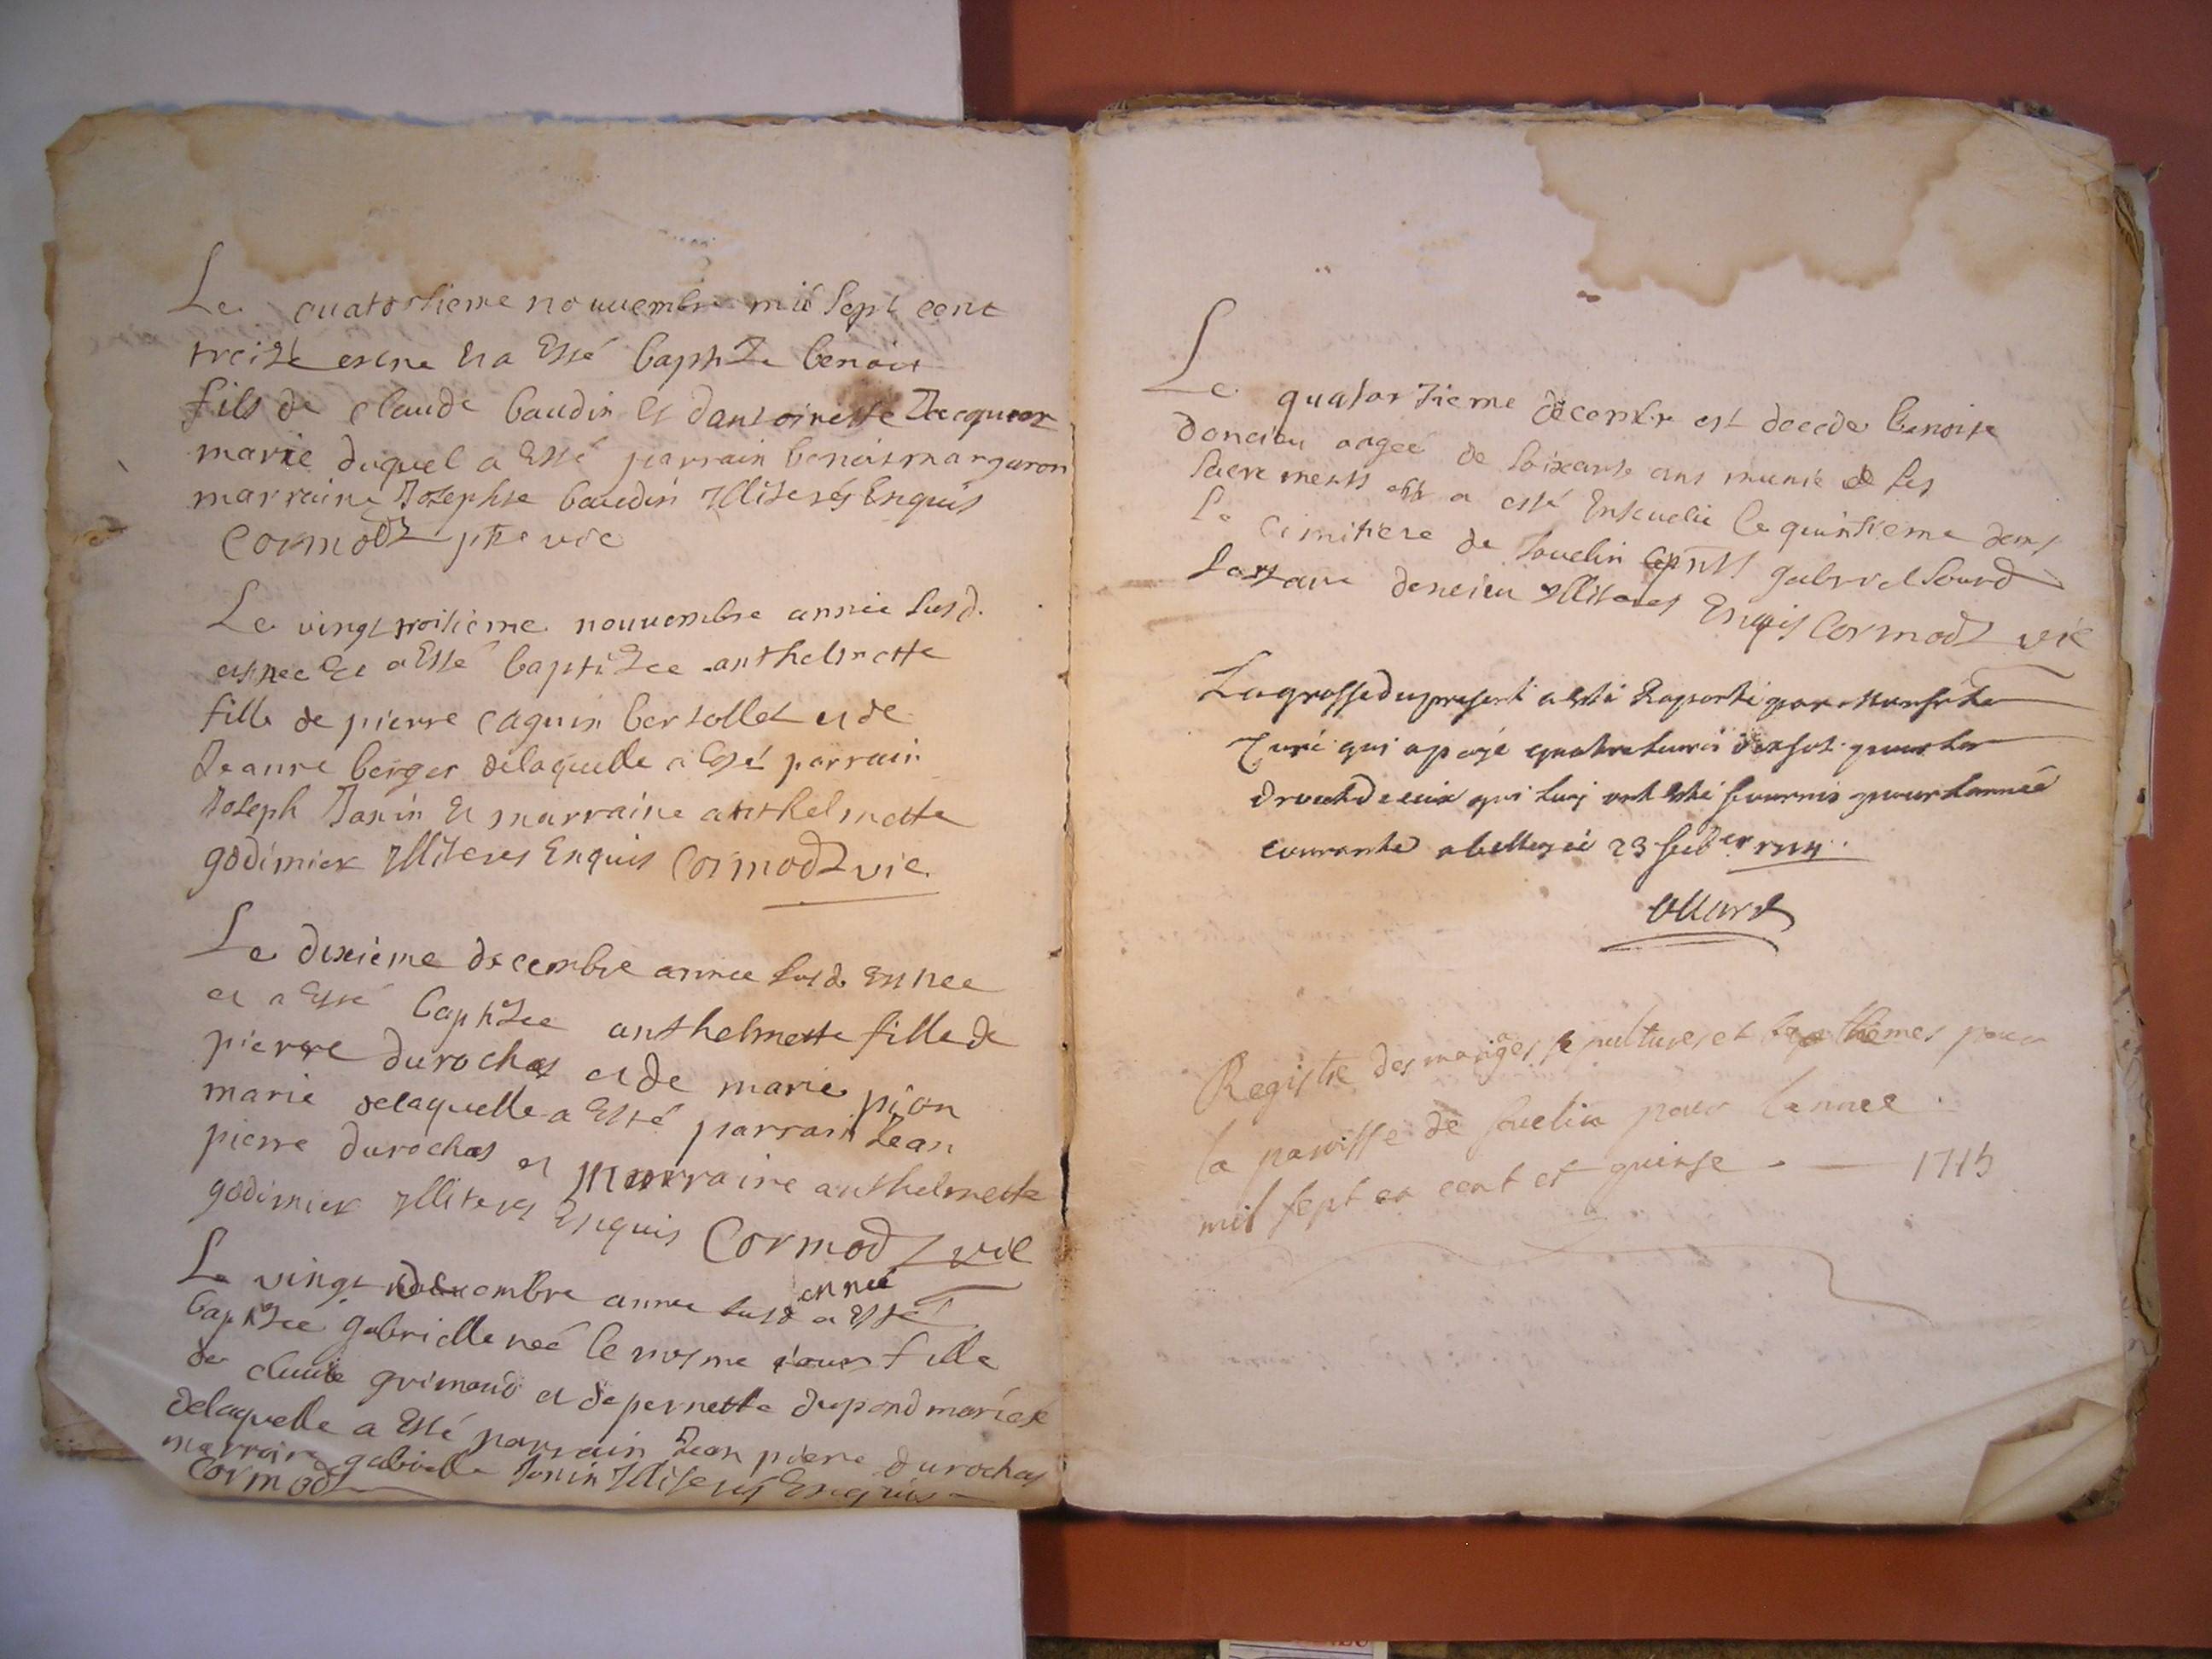 Le quatorsieme nouuembre mil sept cent
treize est ne et a esté baptize benoit
fils de claude baudin et dantoinette Jacquier
marié duquel a esté parrain benoit margaron
marraine Josephte baudin Illiterés Enquis
Cormod ptre vic
Le vingt troisieme nouuembre année susd.
est nee et a esté baptizee anthelmette
fille de pierre caguin bertollet et de
Jeanne berger delaquelle a esté parrain
Joseph Janin et marraine anthelmette
godimier Illiteres Enquis Cormod vic
Le dixième decembre annee susd. est nee
et a esté baptizee anthelmette fille de
pierre durochas et de marie pion
marié delaquelle a esté parrain Jean
pierre durochas et marraine anthelmette
godimier Illiteres Enquis Cormod vic
Le vingt decembre annee susd a esté
en nee
baptizee gabrielle neé le mesme jour fille
de claude grimaud et de pernette dupond mariés
delaquelle a esté parrain Jean pierre durochas
marraine gabrielle Janin Illiterés Enquis
Cormod
Le quatorzieme decembre est decede benoite
doncieu aageé de soixante ans munie de ses
sacrements et a esté Enseuelie le quinsieme dans
le cimitiere de souclin pnts gabriel sourd
doncieu Illiteres Enquis Cormod vic
La grosse du present a esté Raporté par
Curé qui a payé quatre liures dix sol pour les
droict de ceux qui luy ont esté fournis pour lannée
courante a belley ce 23 feb 1714
Registre des mariages sepultures et bapthemes pour
la paroisse de souclin pour lannee
mil sept cent et quinse - — 1715